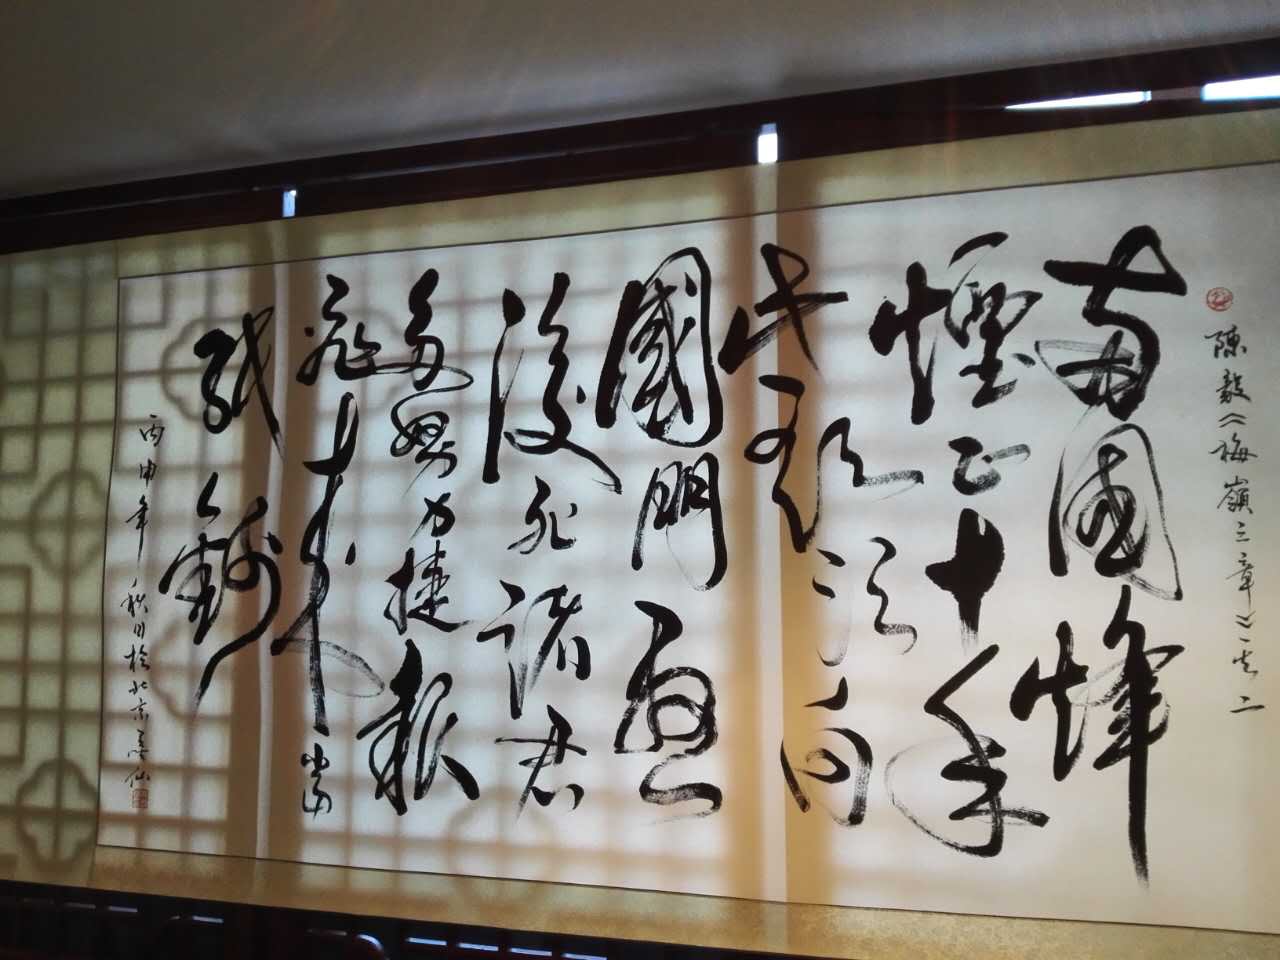 陳毅《梅嶺三章》之二
南國烽
煙正十年
此頭須向
國門懸
後死諸君
多努力捷報
飛來當
紙錢
丙申年秋月於北京